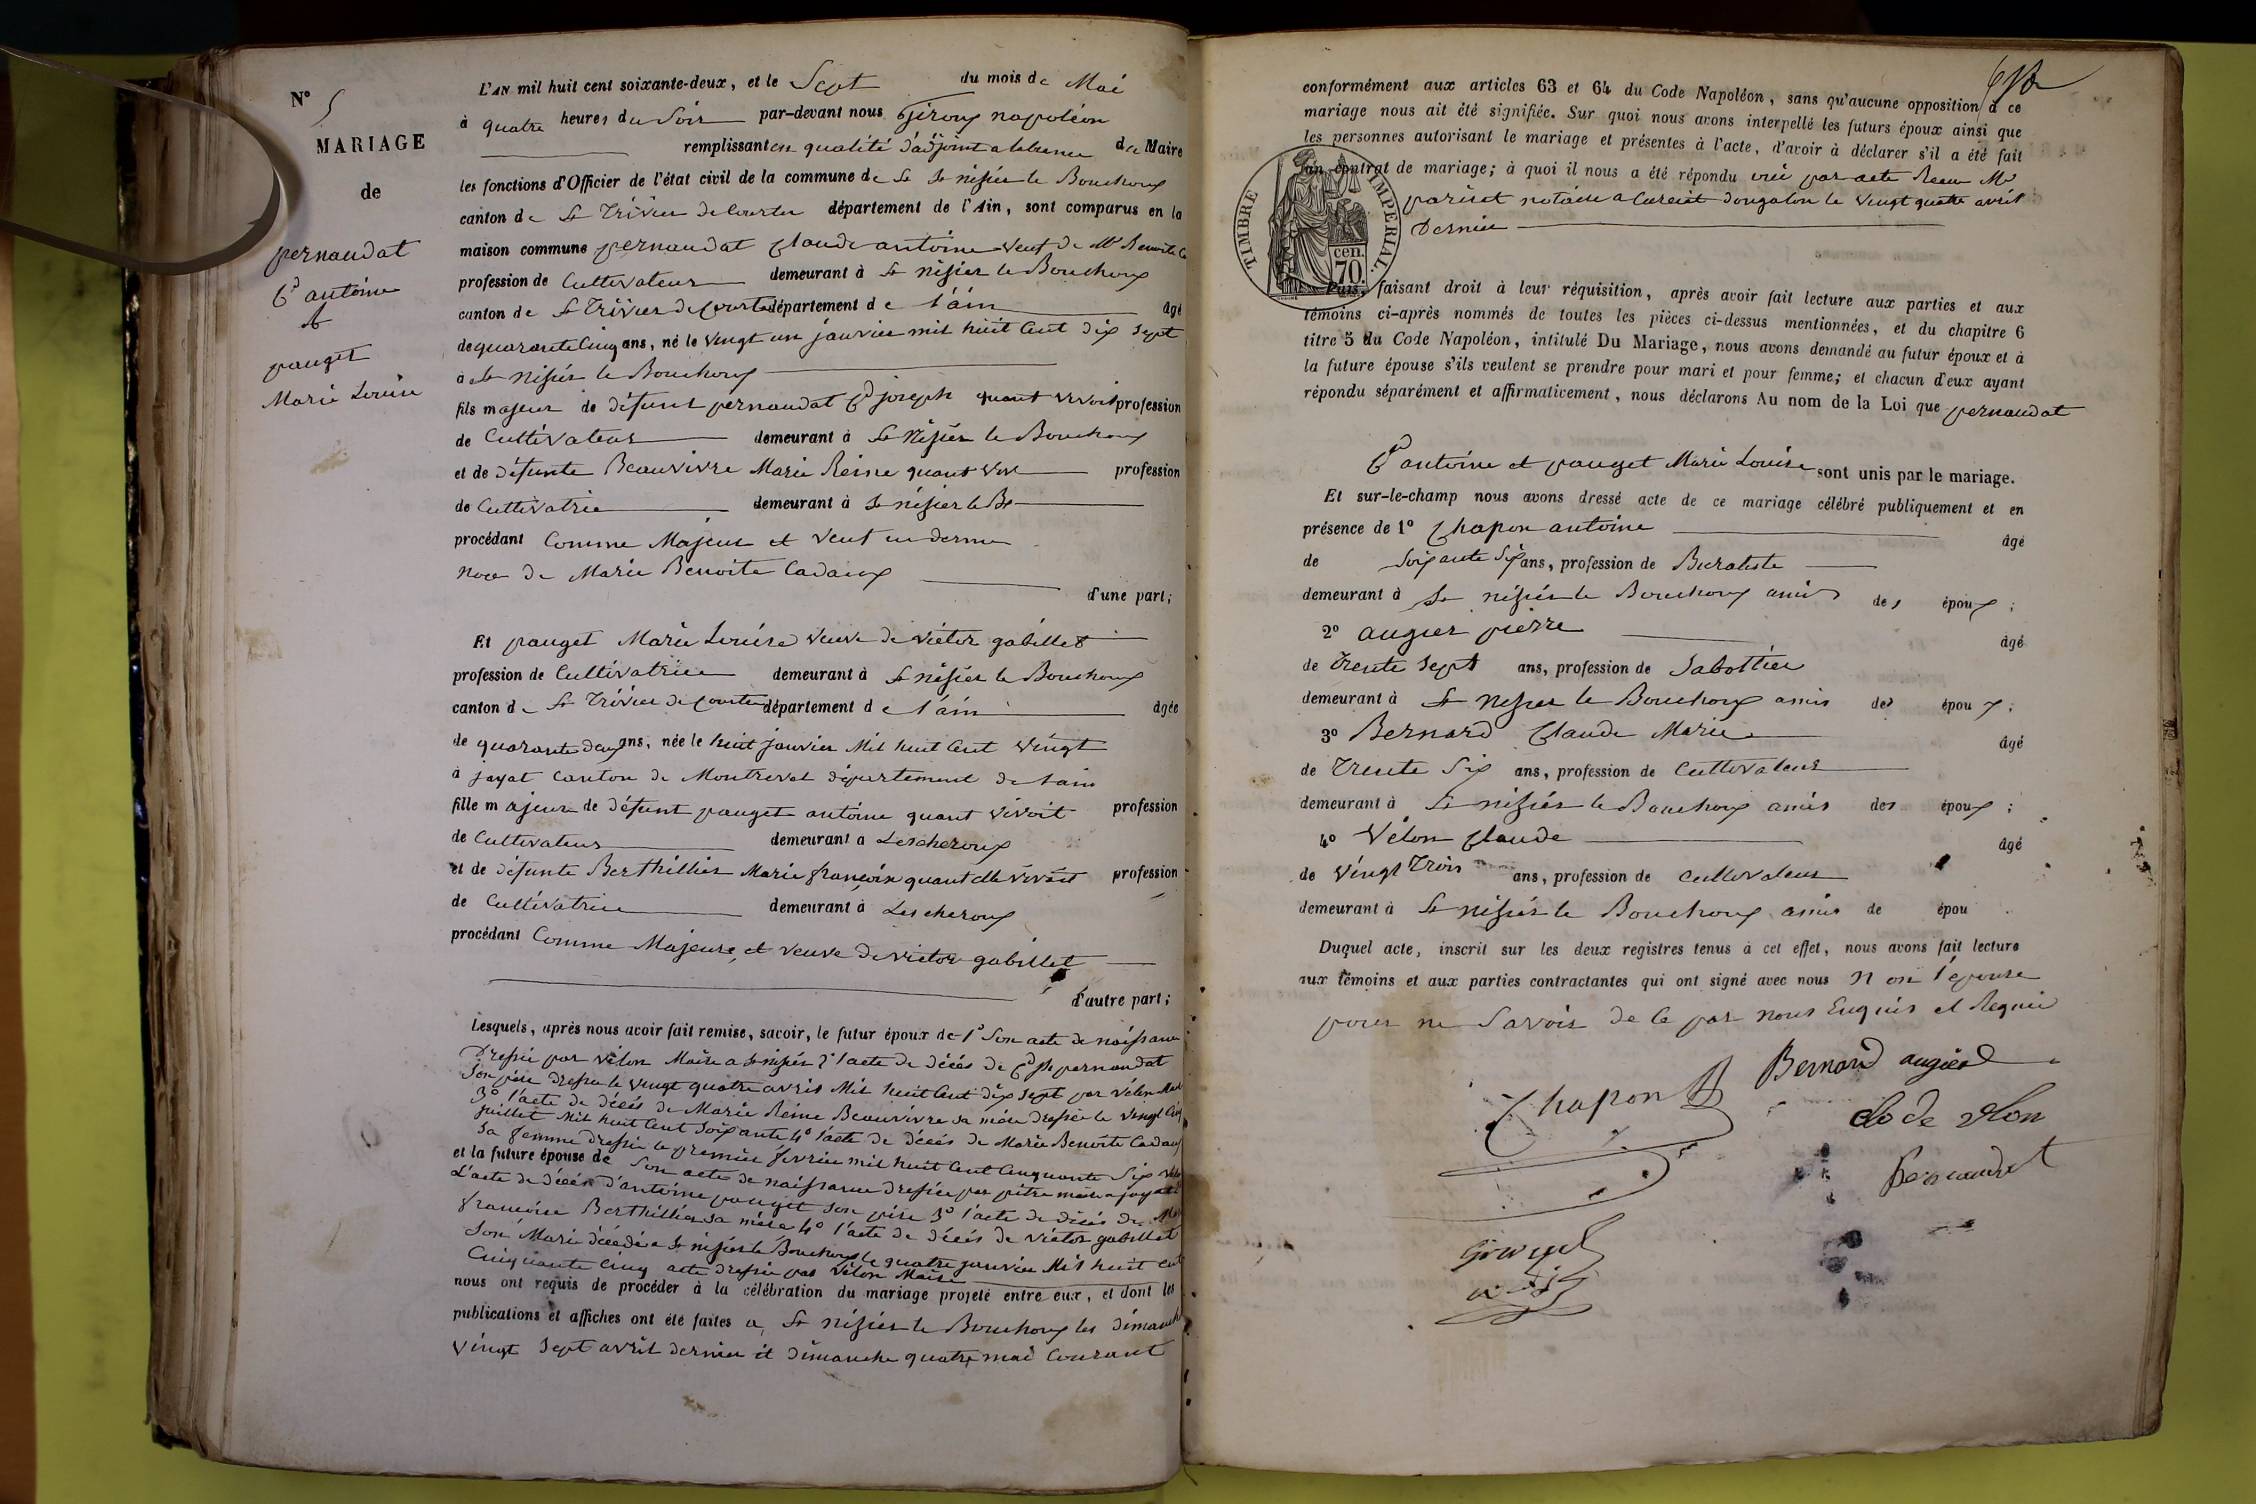 N° 5
MARIAGE
de
pernaudat
Cd antoine
et
pauget
Marie Louise
L'AN mil huit cent soixante-deux, et le Sept du mois de Mai
à quatre heures du Soir par-devant nous Giroux napoléon
remplissant en qualité d'adjoint a labsence du Maire
les fonctions d'Officier de l'état civil de la commune de St nisier le Bouchoux
canton de St Trivier de Courtes département de l'Ain, sont comparus en la
maison commune pernaudat Claude antoine veuf de Me Benoite
profession de Cultivateur demeurant à St nisier le Bouchoux
canton de St Trivier de Courtes département de l'ain âgé
de quarante Cinq ans, né le vingt un janvier mil huit Cent dix sept
à St nisier le Bouchoux
fils majeur de défunt pernaudat Cd joseph quant vivoit profession
de Cultivateur demeurant à St Nisier le Bouchoux
et de défunte Beauvivre Marie Reine quant vivoit profession
de Cultivatrice demeurant à St nisier le Bx
procédant Comme Majeur et veuf en derniere
noce de Marie Benoite Cadaux
d'une part;
Et pauget Marie Louise veuve de victor gabillet
profession de Cultivatrice demeurant à St nisier le Bouchoux
canton de St Trivier de Courtes département de l'ain âgée
de quarante deux ans, née le huit janvier Mil huit Cent vingt
à jayat Canton de Montrevel département de l'ain
fille majeure de défunt pauget antoine quant vivoit profession
de Cultivateur demeurant a Lescheroux
et de défunte Berthillier Marie françoise quant elle vivoit profession
de Cultivatrice demeurant à Lescheroux
procédant Comme Majeure, et veuve de victor gabillet
d'autre part;
Lesquels, après nous avoir fait remise, savoir, le futur époux de 1° Son acte de naissance
Dressé par vélon Maire a St nisier 2° l'acte de décés de Cd jh pernaudat
Son père dressé le vingt quatre avril Mil huit Cent dix sept par vélon Maire
3° l'acte de décés de Marie Reine Beauvivre sa mère dressé le vingt Cinq
juillet Mil huit Cent soixante 4° l'acte de décés de Marie Benoite Cadaux
sa femme dressé le premier février mil huit Cent Cinquante Six
et la future épouse de Son acte de naissance dressée par pitre maire a jayat 2°
L'acte de décés d'antoine pauget son père 3° l'acte de décés de Marie
françoise Berthillier sa mère 4° l'acte de décés de victor gabillet
Son Mari décédé a St nisier le Bouchoux le quatre janvier Mil huit Cent
Cinquante Cinq acte dressé par vélon Maire
nous ont requis de procéder à la célébration du mariage projeté entre eux, et dont les
publications et affiches ont été faites a St nisier le Bouchoux les dimanche
vingt sept avril dernier et dimanche quatre mai Courant
conformément aux articles 63 et 64 du Code Napoléon, sans qu'aucune opposition à ce
mariage nous ait été signifiée. Sur quoi nous avons interpellé les futurs époux ainsi que
les personnes autorisant le mariage et présentes à l'acte, d'avoir à déclarer s'il a été fait
un contrat de mariage; à quoi il nous a été répondu oui par acte Recu Me
notaire a Cuisiat dongalon le vingt quatre avril
Dernier
TIMBRE IMPÉRIAL
70 cen.
Puis, faisant droit à leur réquisition, après avoir fait lecture aux parties et aux
témoins ci-après nommés de toutes les pièces ci-dessus mentionnées, et du chapitre 6
titre 5 du Code Napoléon, intitulé Du Mariage, nous avons demandé au futur époux et à
la future épouse s'ils veulent se prendre pour mari et pour femme; et chacun d'eux ayant
répondu séparément et affirmativement, nous déclarons Au nom de la Loi que pernaudat
Cd antoine et pauget Marie Louise sont unis par le mariage.
Et sur-le-champ nous avons dressé acte de ce mariage célébré publiquement et en
présence de 1° Chapon antoine âgé
de Soixante Six ans, profession de Buraliste
demeurant à St nisier le Bouchoux amis des époux;
2° augier pierre âgé
de Trente Sept ans, profession de Sabottier
demeurant à St nisier le Bouchoux amis des époux;
3° Bernard Claude Marie âgé
de Trente Six ans, profession de Cultivateur
demeurant à St nisier le Bouchoux amis des époux;
4° Vélon Claude âgé
de Vingt Trois ans, profession de Cultivateur
demeurant à St nisier le Bouchoux amis de épou
Duquel acte, inscrit sur les deux registres tenus à cet effet, nous avons fait lecture
aux témoins et aux parties contractantes qui ont signé avec nous Non l'épouse
pour ne Savoir de Ce par nous Enquis et Requis
Chapon Bernard augier
Clode vlon
Pernaudat